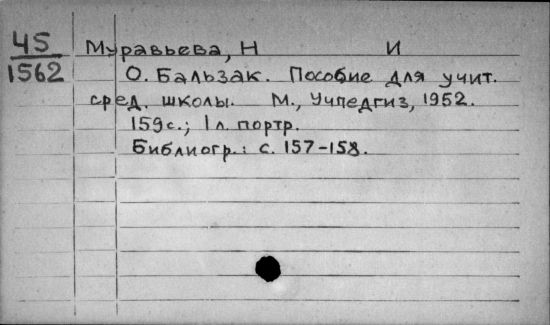 45
1562
Муравьева, Н И
О. Бальзак. Пособие для учит.
сред. школы. М., Учпедгиз, 1952.
159с.; 1 л. портр.
Библиогр.: с. 157-158.